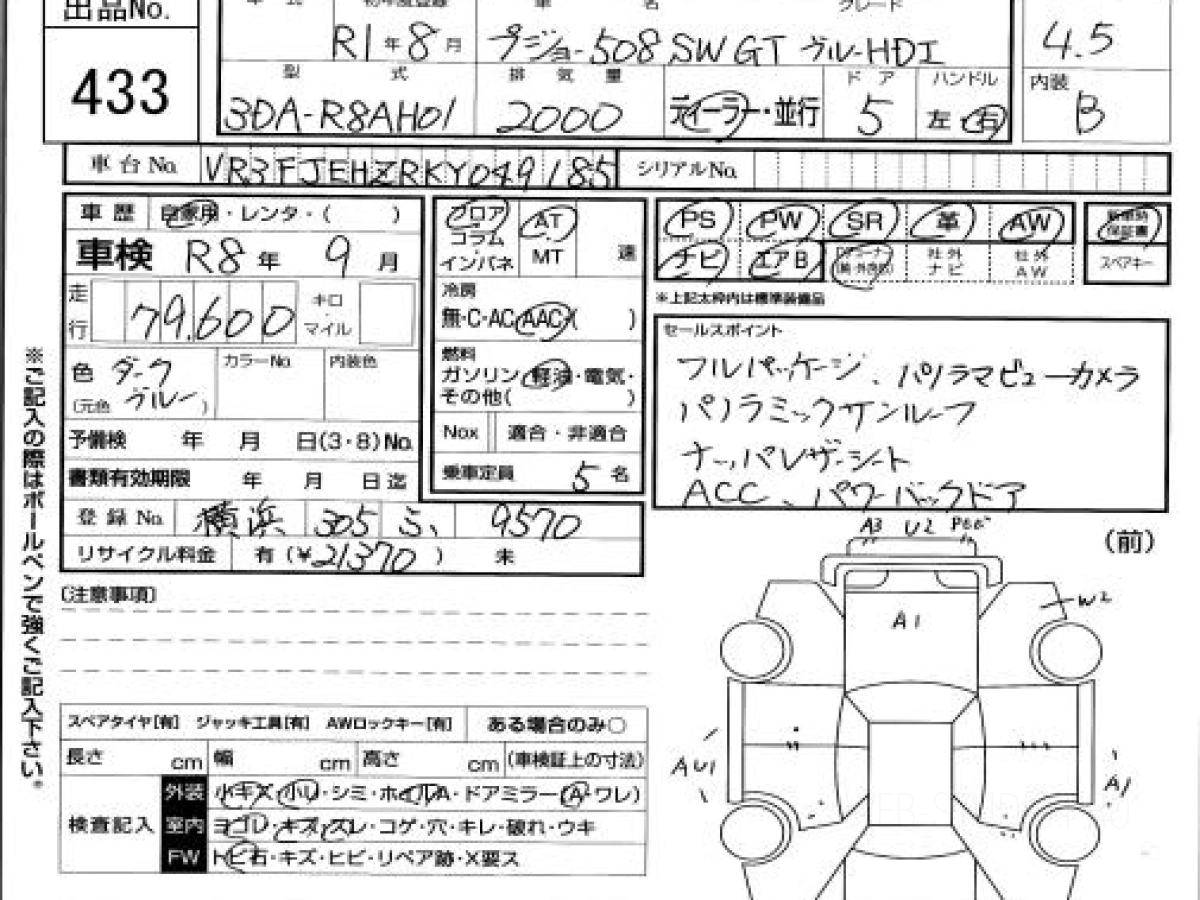 出品No.
433
R1年8月
車名
グレード
プジョー508 SW GT ブルーHDI
4.5
型式
排気量
ドア
ハンドル
内装
3DA-R8AH01
2000
ディーラー・並行
5
左・右
B
車台No. VR3FJEHZRKY049185
シリアルNo.
車歴 自家用・レンタ・( )
車検 R8年 9月
走行 79,600 キロ・マイル
色 ダークブルー
(元色 )
カラーNo
内装色
予備検 年 月 日(3・8)No.
書類有効期限 年 月 日迄
登録No. 横浜 305 ふ 9570
リサイクル料金 有(¥21370) 未
フロア
コラム
インパネ
AT
MT
速
冷房
無・C・AC・AAC( )
燃料
ガソリン・軽油・電気・
その他( )
Nox 適合・非適合
乗車定員 5名
PS PW SR 革 AW
ナビ エアB
社外ナビ
社外AW
新車時保証書
スペアキー
※上記太枠内は標準装備品
セールスポイント
フルパッケージ、パノラマビューカメラ
パノラミックサンルーフ
ナッパレザーシート
ACC、パワーバックドア
(注意事項)
※ご記入の際はボールペンで強くご記入下さい。
スペアタイヤ[有] ジャッキ工具[有] AWロックキー[有] ある場合のみ○
長さ cm 幅 cm 高さ cm (車検証上の寸法)
検査記入
外装 小キズ・小凹・シミ・ホイルA・ドアミラー(A・ワレ)
室内 ヨゴレ・キズ・スレ・コゲ・穴・キレ・破れ・ウキ
FW トビ石・キズ・ヒビ・リペア跡・X要ス
A3 U2
(前)
W2
A1
AU1
A1